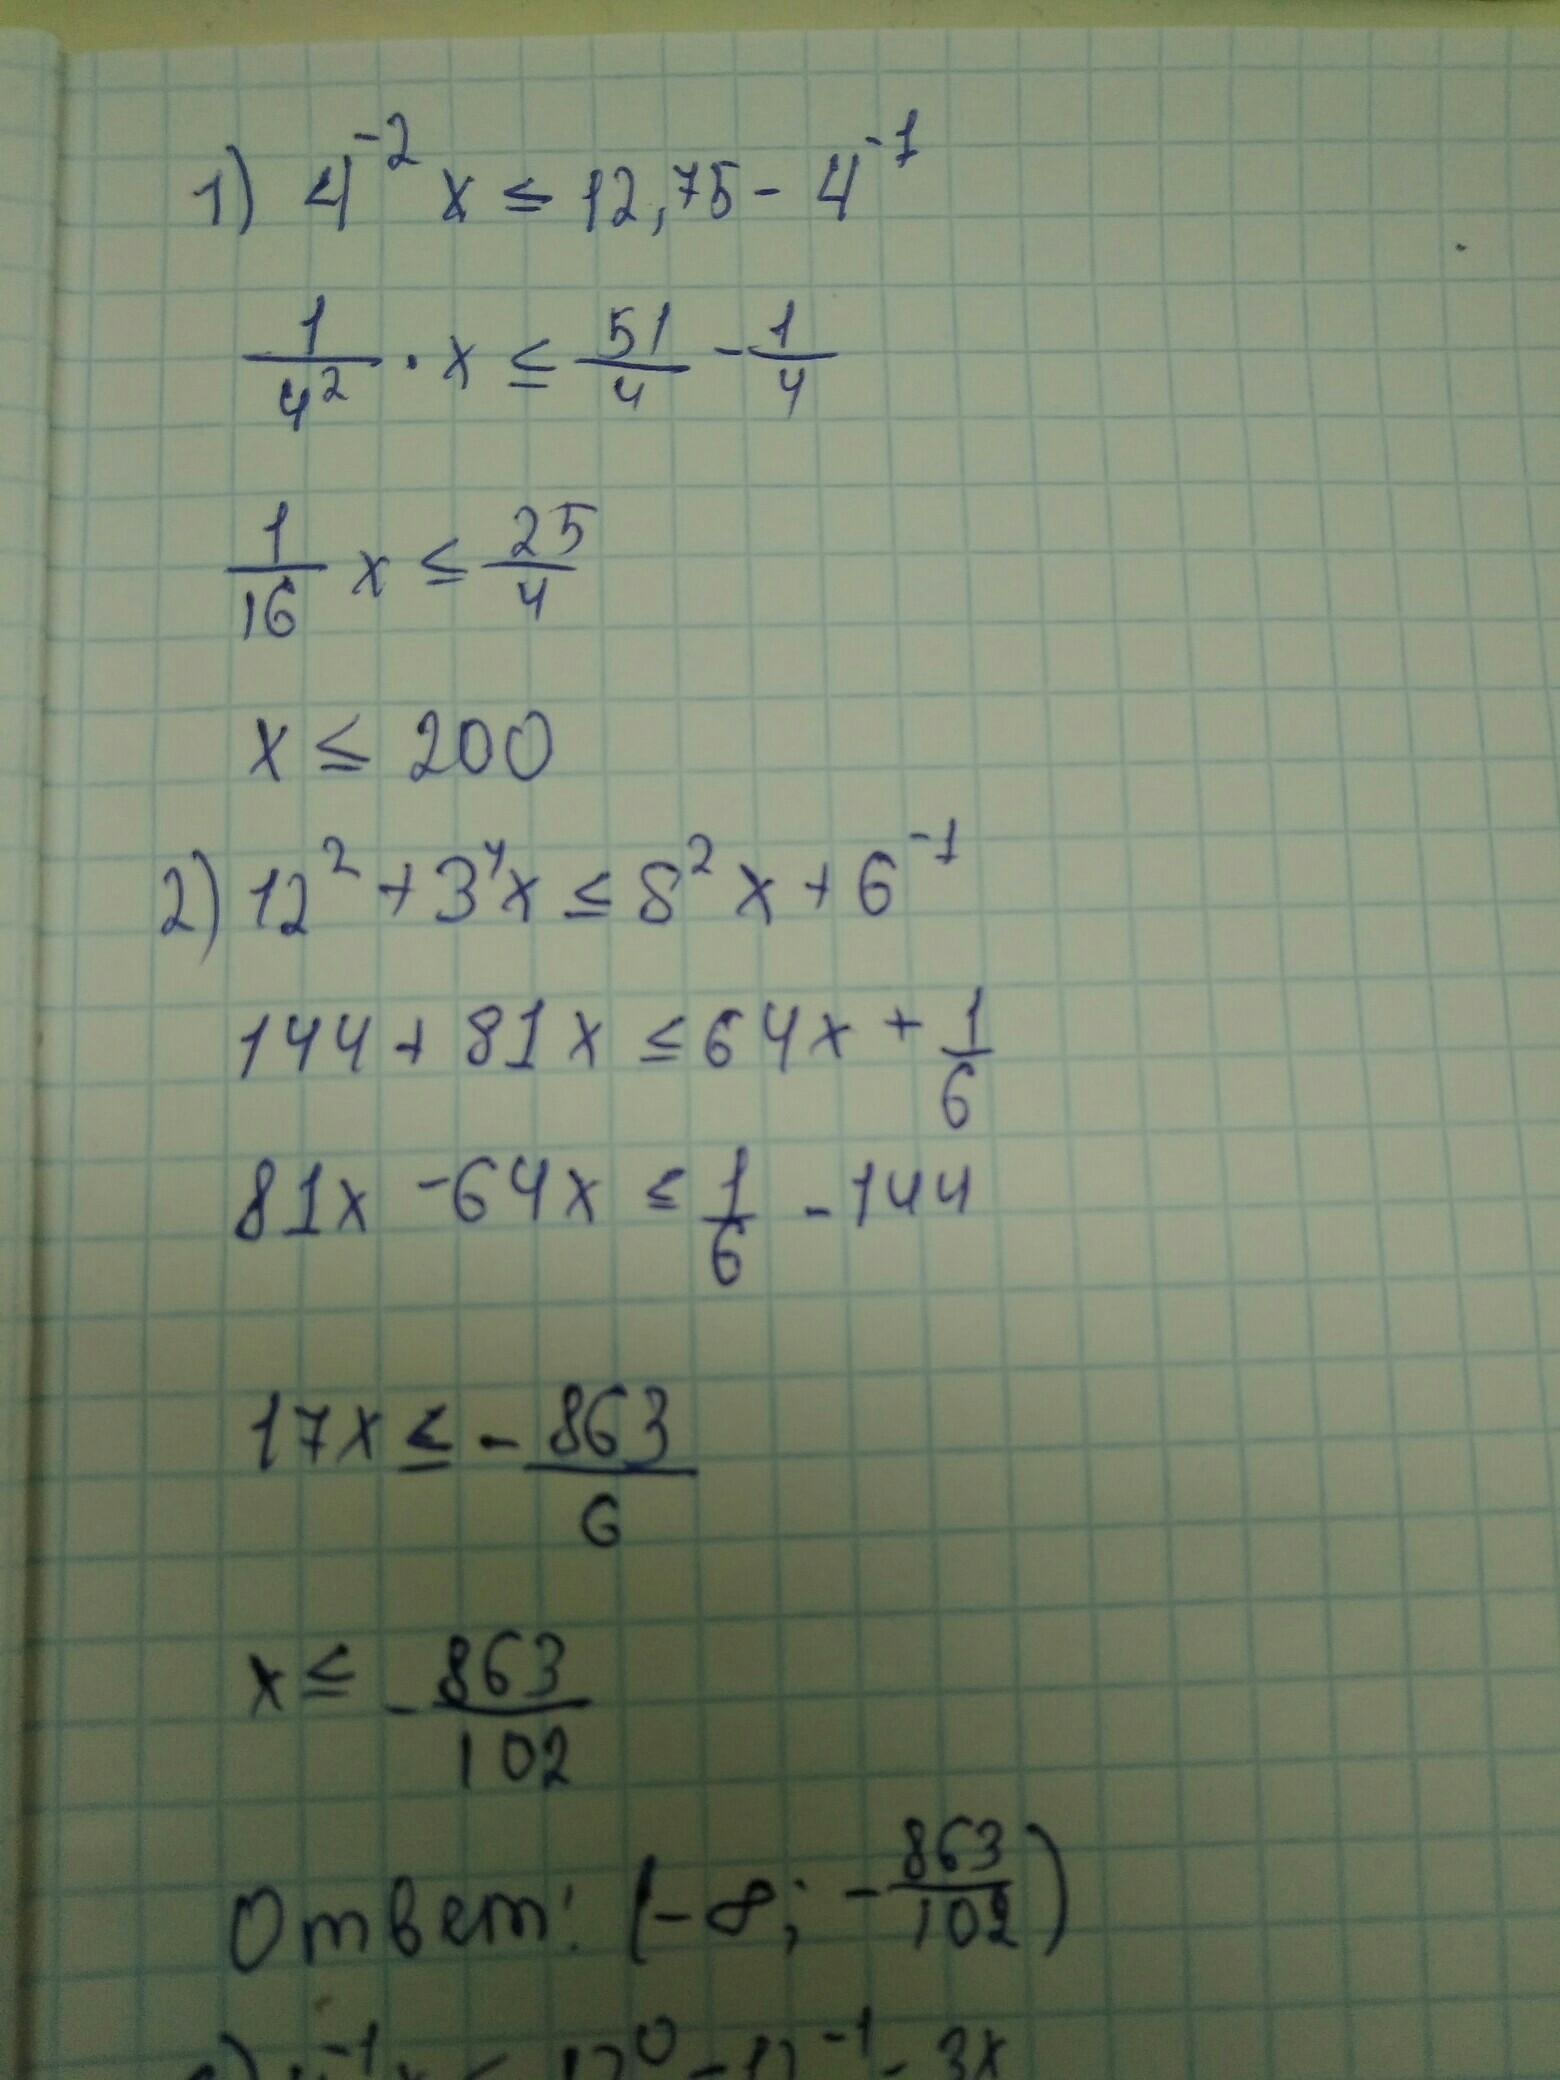 1) 4⁻² x ≤ 12,75 - 4⁻¹
1/4² · x ≤ 51/4 - 1/4
1/16 x ≤ 25/4
x ≤ 200
2) 12² + 3⁴x ≤ 8² x + 6⁻¹
144 + 81x ≤ 64x + 1/6
81x - 64x ≤ 1/6 - 144
17x ≤ - 863/6
x ≤ - 863/102
Ответ: (-∞; - 863/102)